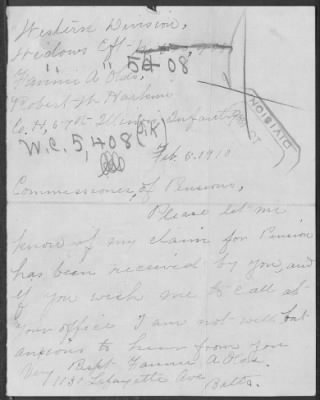 Western Division,
Widows Ctf
" " 5408
Fannie A Olds,
Robert W Harkins
Co. H, 67th Illinois Infantry
W.C. 5,408
DIVISION
Feb. 8. 1910
Commissioner, of Pensions,
Please let me
know if my claim for Pension
has been received by you, and
if you wish me to call at
your office I am not well but
anxious to hear from you
Very Respt Fannie A Olds.
1131 Lafayette Ave
Balto.